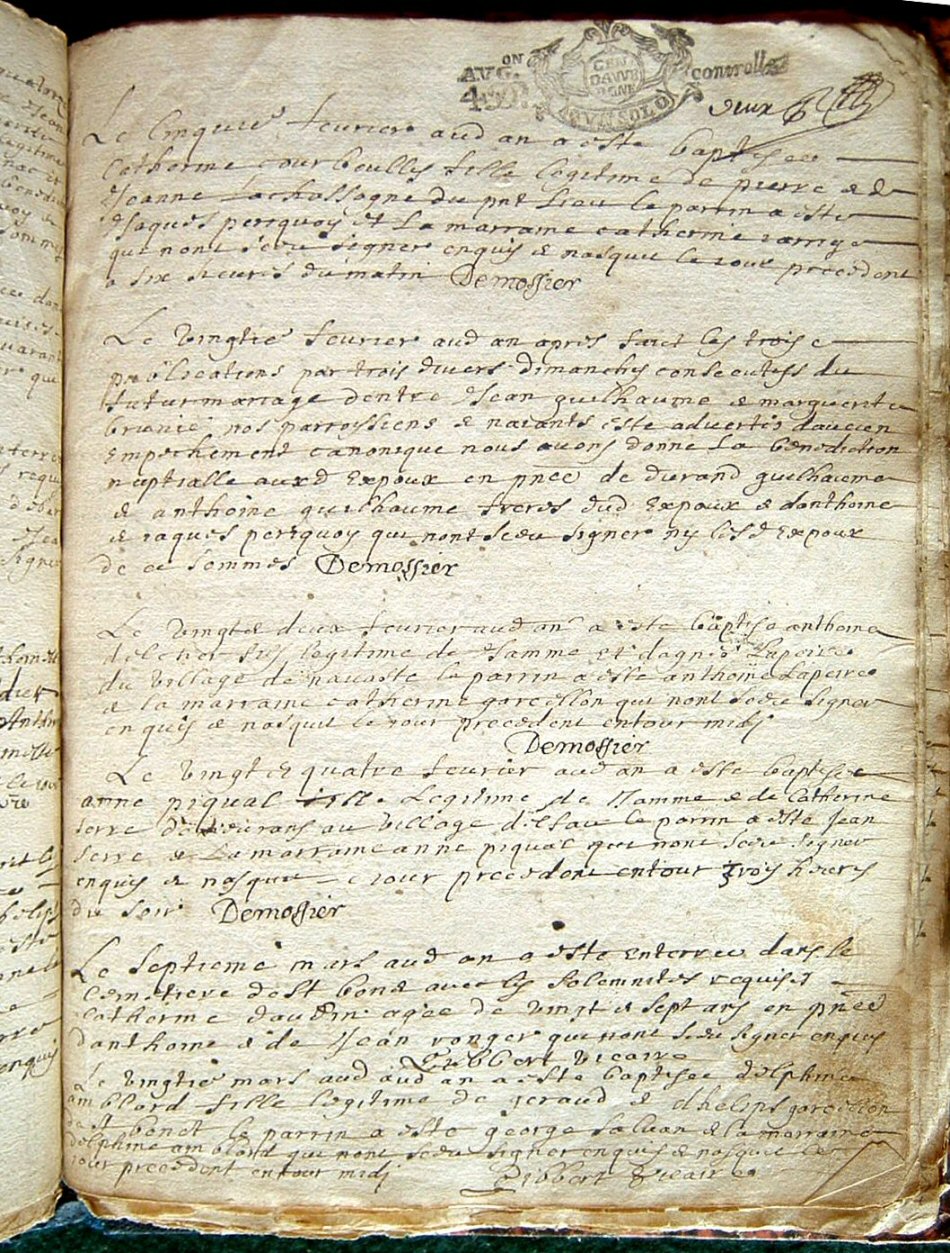 AVG.ON
GEN
DAVV
RGNE
controlle
UN SOL
deux
Le cinquie feurier aud an a este baptisee
Catherine courboulles fille legitime de pierre & de
Jeanne Lachassagne du pnt lieu le parrin a este
Jaques periquoy et La marraine catherine
qui nont sceu signer enquis & nasquit le jour precedent
a six heures du matin Demossier
Le vingtie feurier aud an apres faict les trois
publications par trois divers dimanches consecutifs du
futur mariage dentre Jean guilhaume & marguerite
brunie nos parroissiens & nayants este advertis daucun
Empechement canonique nous avons donne La benediction
nuptialle auxd Expoux en pnce de durand guilhaume
& anthoine guilhaume freres dud Expoux & danthoine
& jaques periquoy qui nont sceu signer ny lesd Expoux
de ce sommes Demossier
Le vingt & deux feurier aud an a este baptise anthoine
delcher fils legitime de Jamme et dagnes Lapeire
du village de navaste le parrin a este anthoine Lapeire
& la marraine catherine gorcellon qui nont sceu signer
enquis & nasquit le jour precedent entour midj
Demossier
Le vingt & quatre feurier aud an a este baptisee
anne piqual fille Legitime de Jamme & de Catherine
serre du village le parrin a este Jean
serre & La marraine anne piqual qui nont sceu signer
enquis & nasquit jour precedent entour trois heures
du soir Demossier
Le septieme mars aud an a este enterree dans le
cemetiere de st bonet avec les solemnites requises
Catherine daudin agee de vingt & sept ans en pnce
danthoine & de Jean ronger qui nont sceu signer enquis
vicaire
Le vingtie mars aud aud an a este baptisee delphine
amblard fille legitime de geraud & dhelips gorcellon
de st bonet le parrin a este george saluan & la marraine
delphine amblard qui nont sceu signer enquis & nasquit le
jour precedent entour midj vicaire